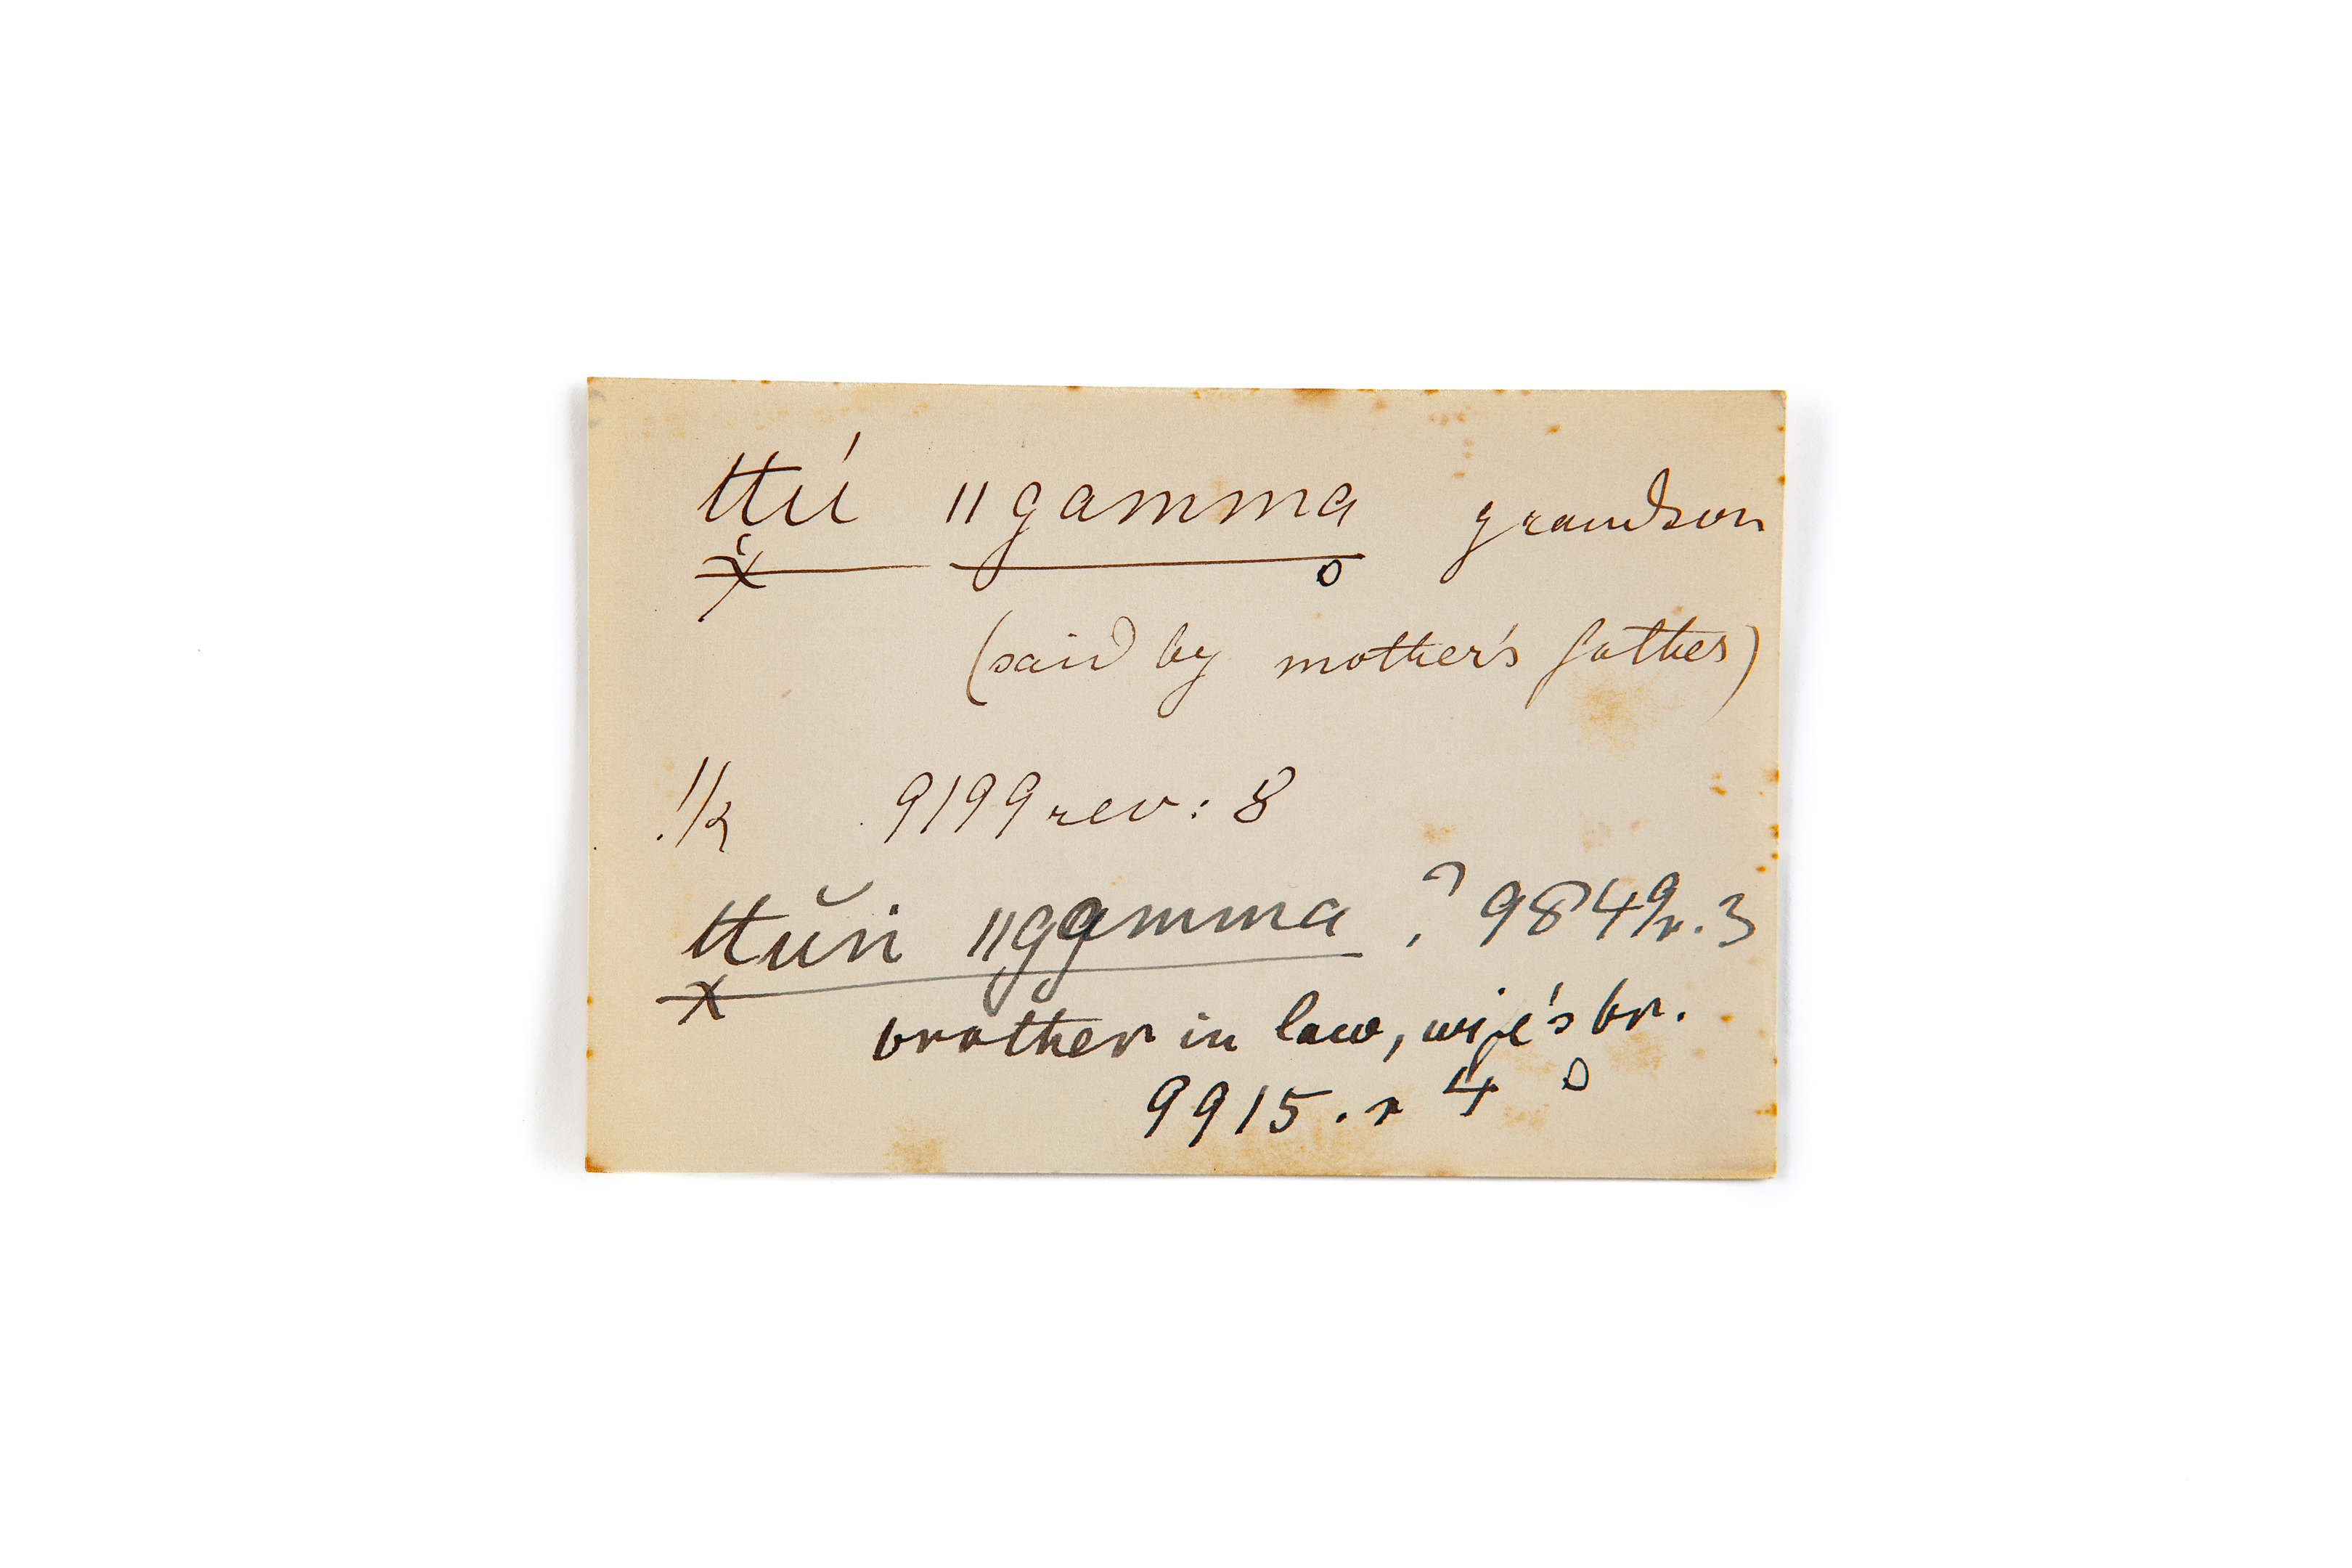 ttú ǁgamma grandson
x
(said by mother's father)
!/k 9199 rev: 8
ttŭri ǁggamma ? 9849 r. 3
x
brother in law, wife's br.
9915. r 4